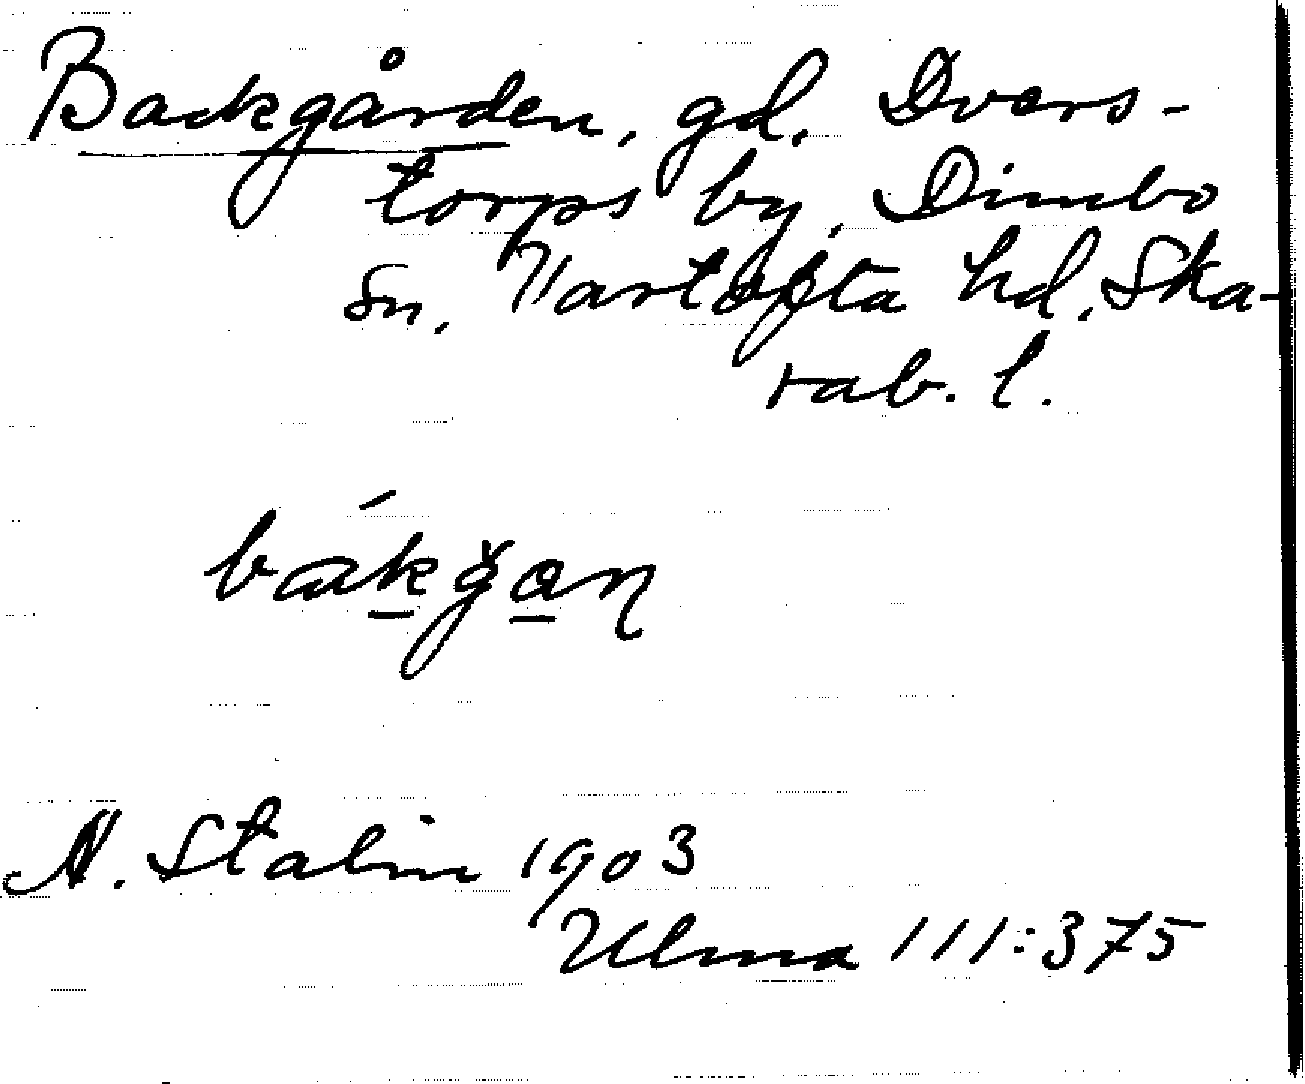 Backgården, gd. Dvers-
torps by, Dimbo
sn. Vartofta hd. Ska-
rab. l.
N. Stalin 1903
Ulma 111:375